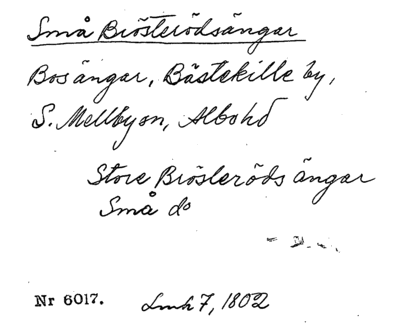 Små Brösterödsängar
Bosängar, Bästekille by,
S. Mellbysn, Albohd
Store Brösteröds ängar
Små do
Nr 6017. Lmh 7, 1802